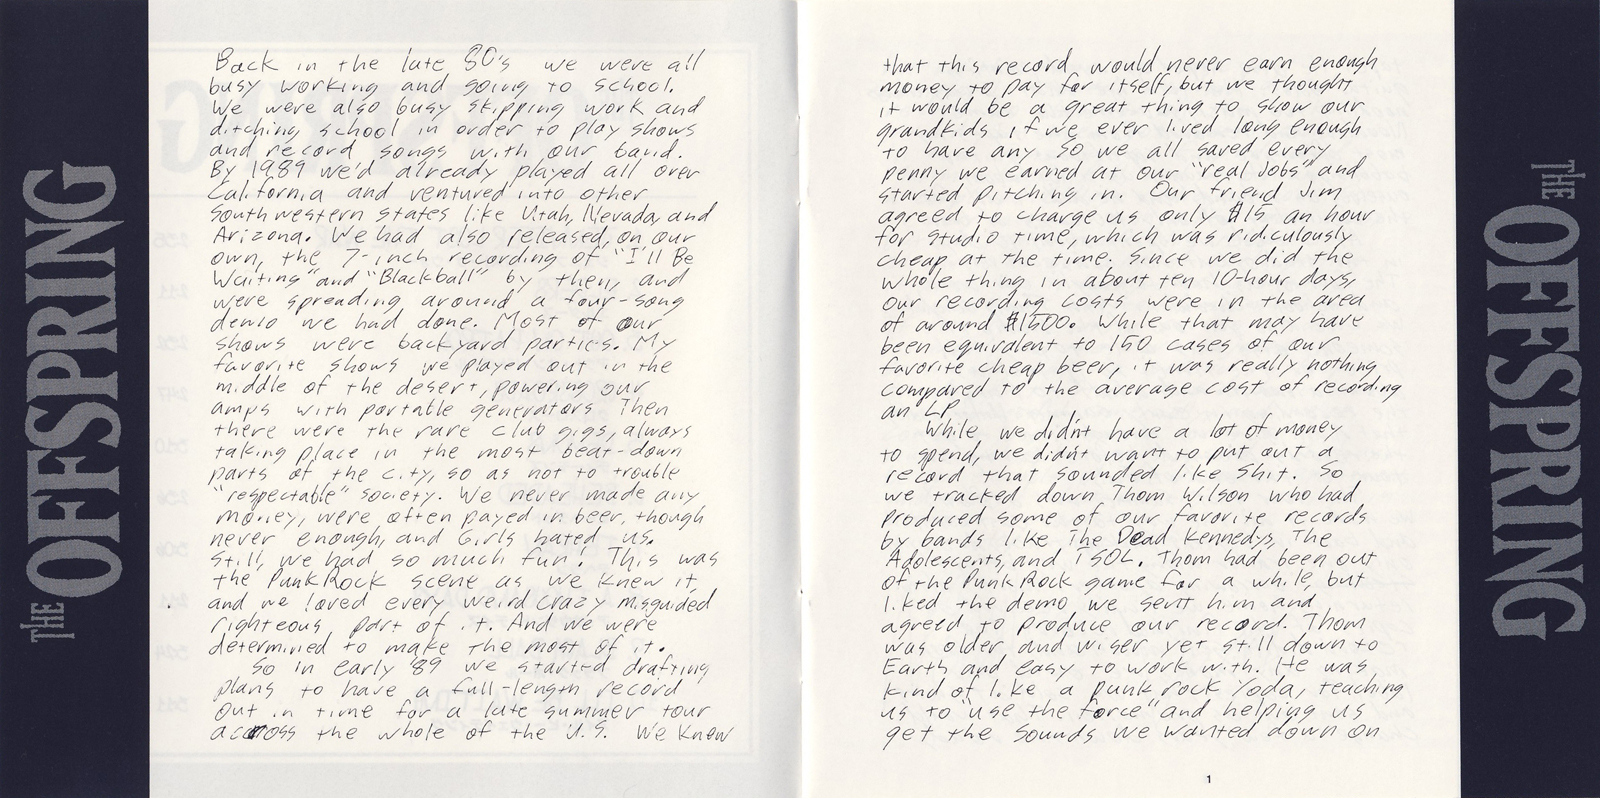 THE OFFSPRING
Back in the late 80's we were all
busy working and going to school.
We were also busy skipping work and
ditching school in order to play shows
and record songs with our band.
By 1989 we'd already played all over
California and ventured into other
southwestern states like Utah, Nevada, and
Arizona. We had also released, on our
own, the 7-inch recording of "I'll Be
Waiting" and "Blackball" by then, and
were spreading around a four-song
demo we had done. Most of our
shows were backyard parties. My
favorite shows we played out in the
middle of the desert, powering our
amps with portable generators Then
there were the rare club gigs, always
taking place in the most beat-down
parts of the city, so as not to trouble
"respectable" society. We never made any
money, were often payed in beer, though
never enough, and Girls hated us.
Still, we had so much fun! This was
the Punk Rock scene as we knew it,
and we loved every weird crazy misguided
righteous part of it. And we were
determined to make the most of it.
So in early '89 we started drafting
plans to have a full-length record
out in time for a late summer tour
across the whole of the U.S. We knew
that this record would never earn enough
money to pay for itself, but we thought
it would be a great thing to show our
grandkids if we ever lived long enough
to have any So we all saved every
penny we earned at our "real jobs" and
started pitching in. Our friend Jim
agreed to charge us only $15 an hour
for studio time, which was ridiculously
cheap at the time. Since we did the
whole thing in about ten 10-hour days,
our recording costs were in the area
of around $1500. While that may have
been equivalent to 150 cases of our
favorite cheap beer, it was really nothing
compared to the average cost of recording
an LP
While we didn't have a lot of money
to spend, we didn't want to put out a
record that sounded like Shit. So
we tracked down Thom Wilson who had
produced some of our favorite records
by bands like The Dead Kennedys, The
Adolescents, and TSOL. Thom had been out
of the Punk Rock game for a while, but
liked the demo we sent him and
agreed to produce our record. Thom
was older, and wiser yet still down to
Earth and easy to work with. He was
kind of like a punk rock Yoda, teaching
us to "use the force" and helping us
get the sounds we wanted down on
1
THE OFFSPRING